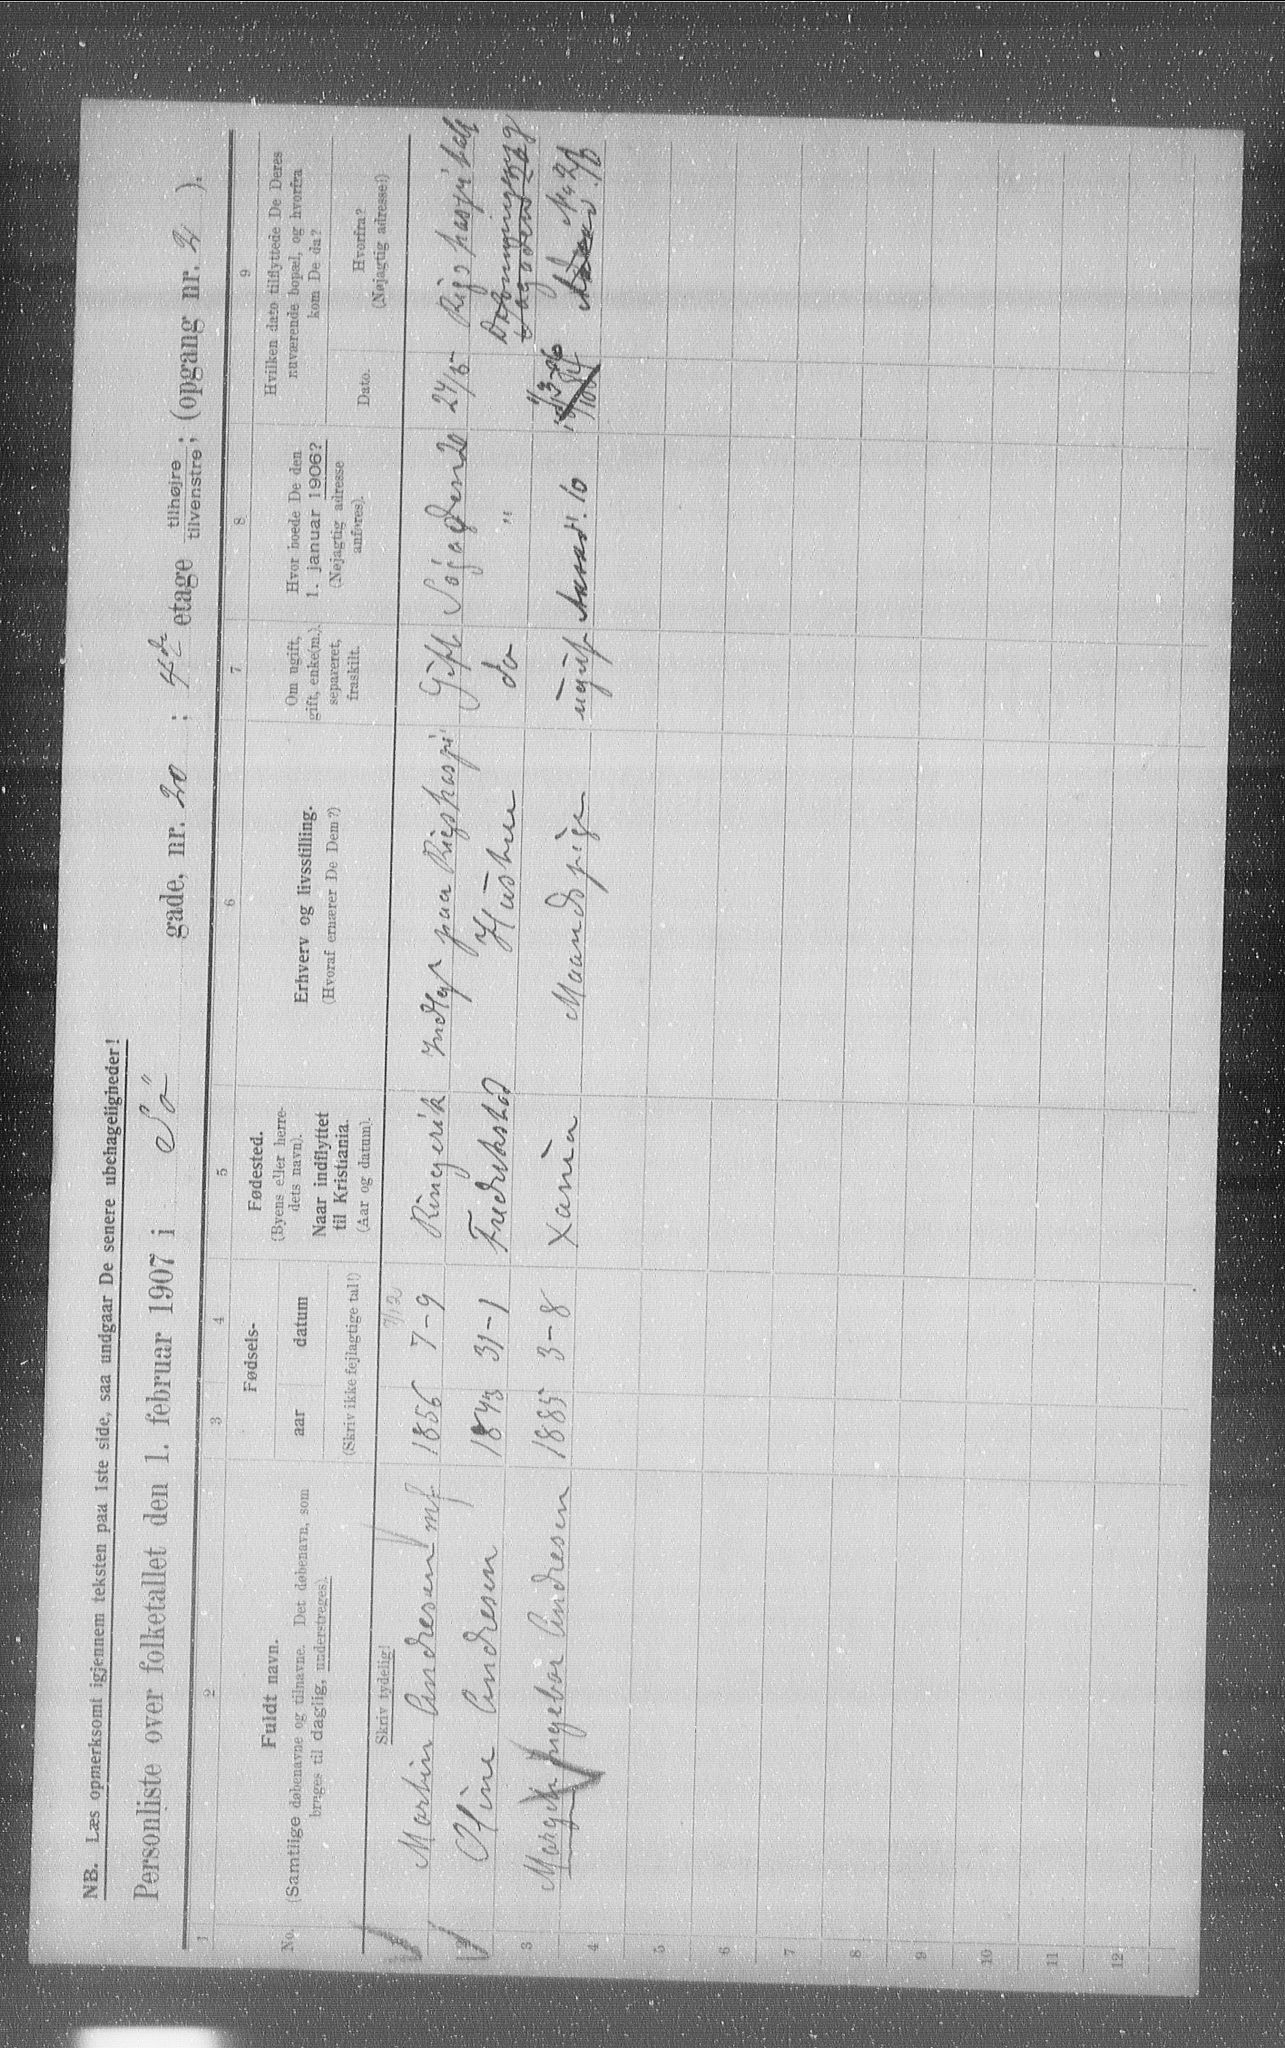 NB. Læs opmerksomt igjennem teksten paa 1ste side, saa undgaar De senere ubehageligheder!
Personliste over folketallet den 1. februar 1907 i Sø" gade, nr. 20 ; 4de etage tilhøjre / tilvenstre; (opgang nr. 2 ).
1 2 3 4 5 6 7 8 9
No.
Fuldt navn.
(Samtlige døbenavne og tilnavne. Det døbenavn, som
bruges til daglig, understreges).
Fødsels-
aar datum
(Skriv ikke fejlagtige tal!)
Fødested.
(Byens eller herre-
dets navn).
Naar indflyttet
til Kristiania.
(Aar og datum).
Erhverv og livsstilling.
(Hvoraf ernærer De Dem?)
Om ugift,
gift, enke(m.),
separeret,
fraskilt.
Hvor boede De den
1. januar 1906?
(Nøjagtig adresse
anføres).
Hvilken dato tilflyttede De Deres
nuværende bopæl, og hvorfra
kom De da?
Dato.
Hvorfra?
(Nøjagtig adresse!)
Skriv tydelig!
7/12
Martin Andresen mf 1856 7-9 Ringerik Indlagt paa Rigshospi Gift Søgaden 20 24/5 Rigshospitalet
2 Oline Andresen 1843 31-1 Fredrikstad Hustru do "
3 Margit Ingebor Andresen 1885 3-8 Xania Maandspige ugift
4
5
6
7
8
9
10
11
12